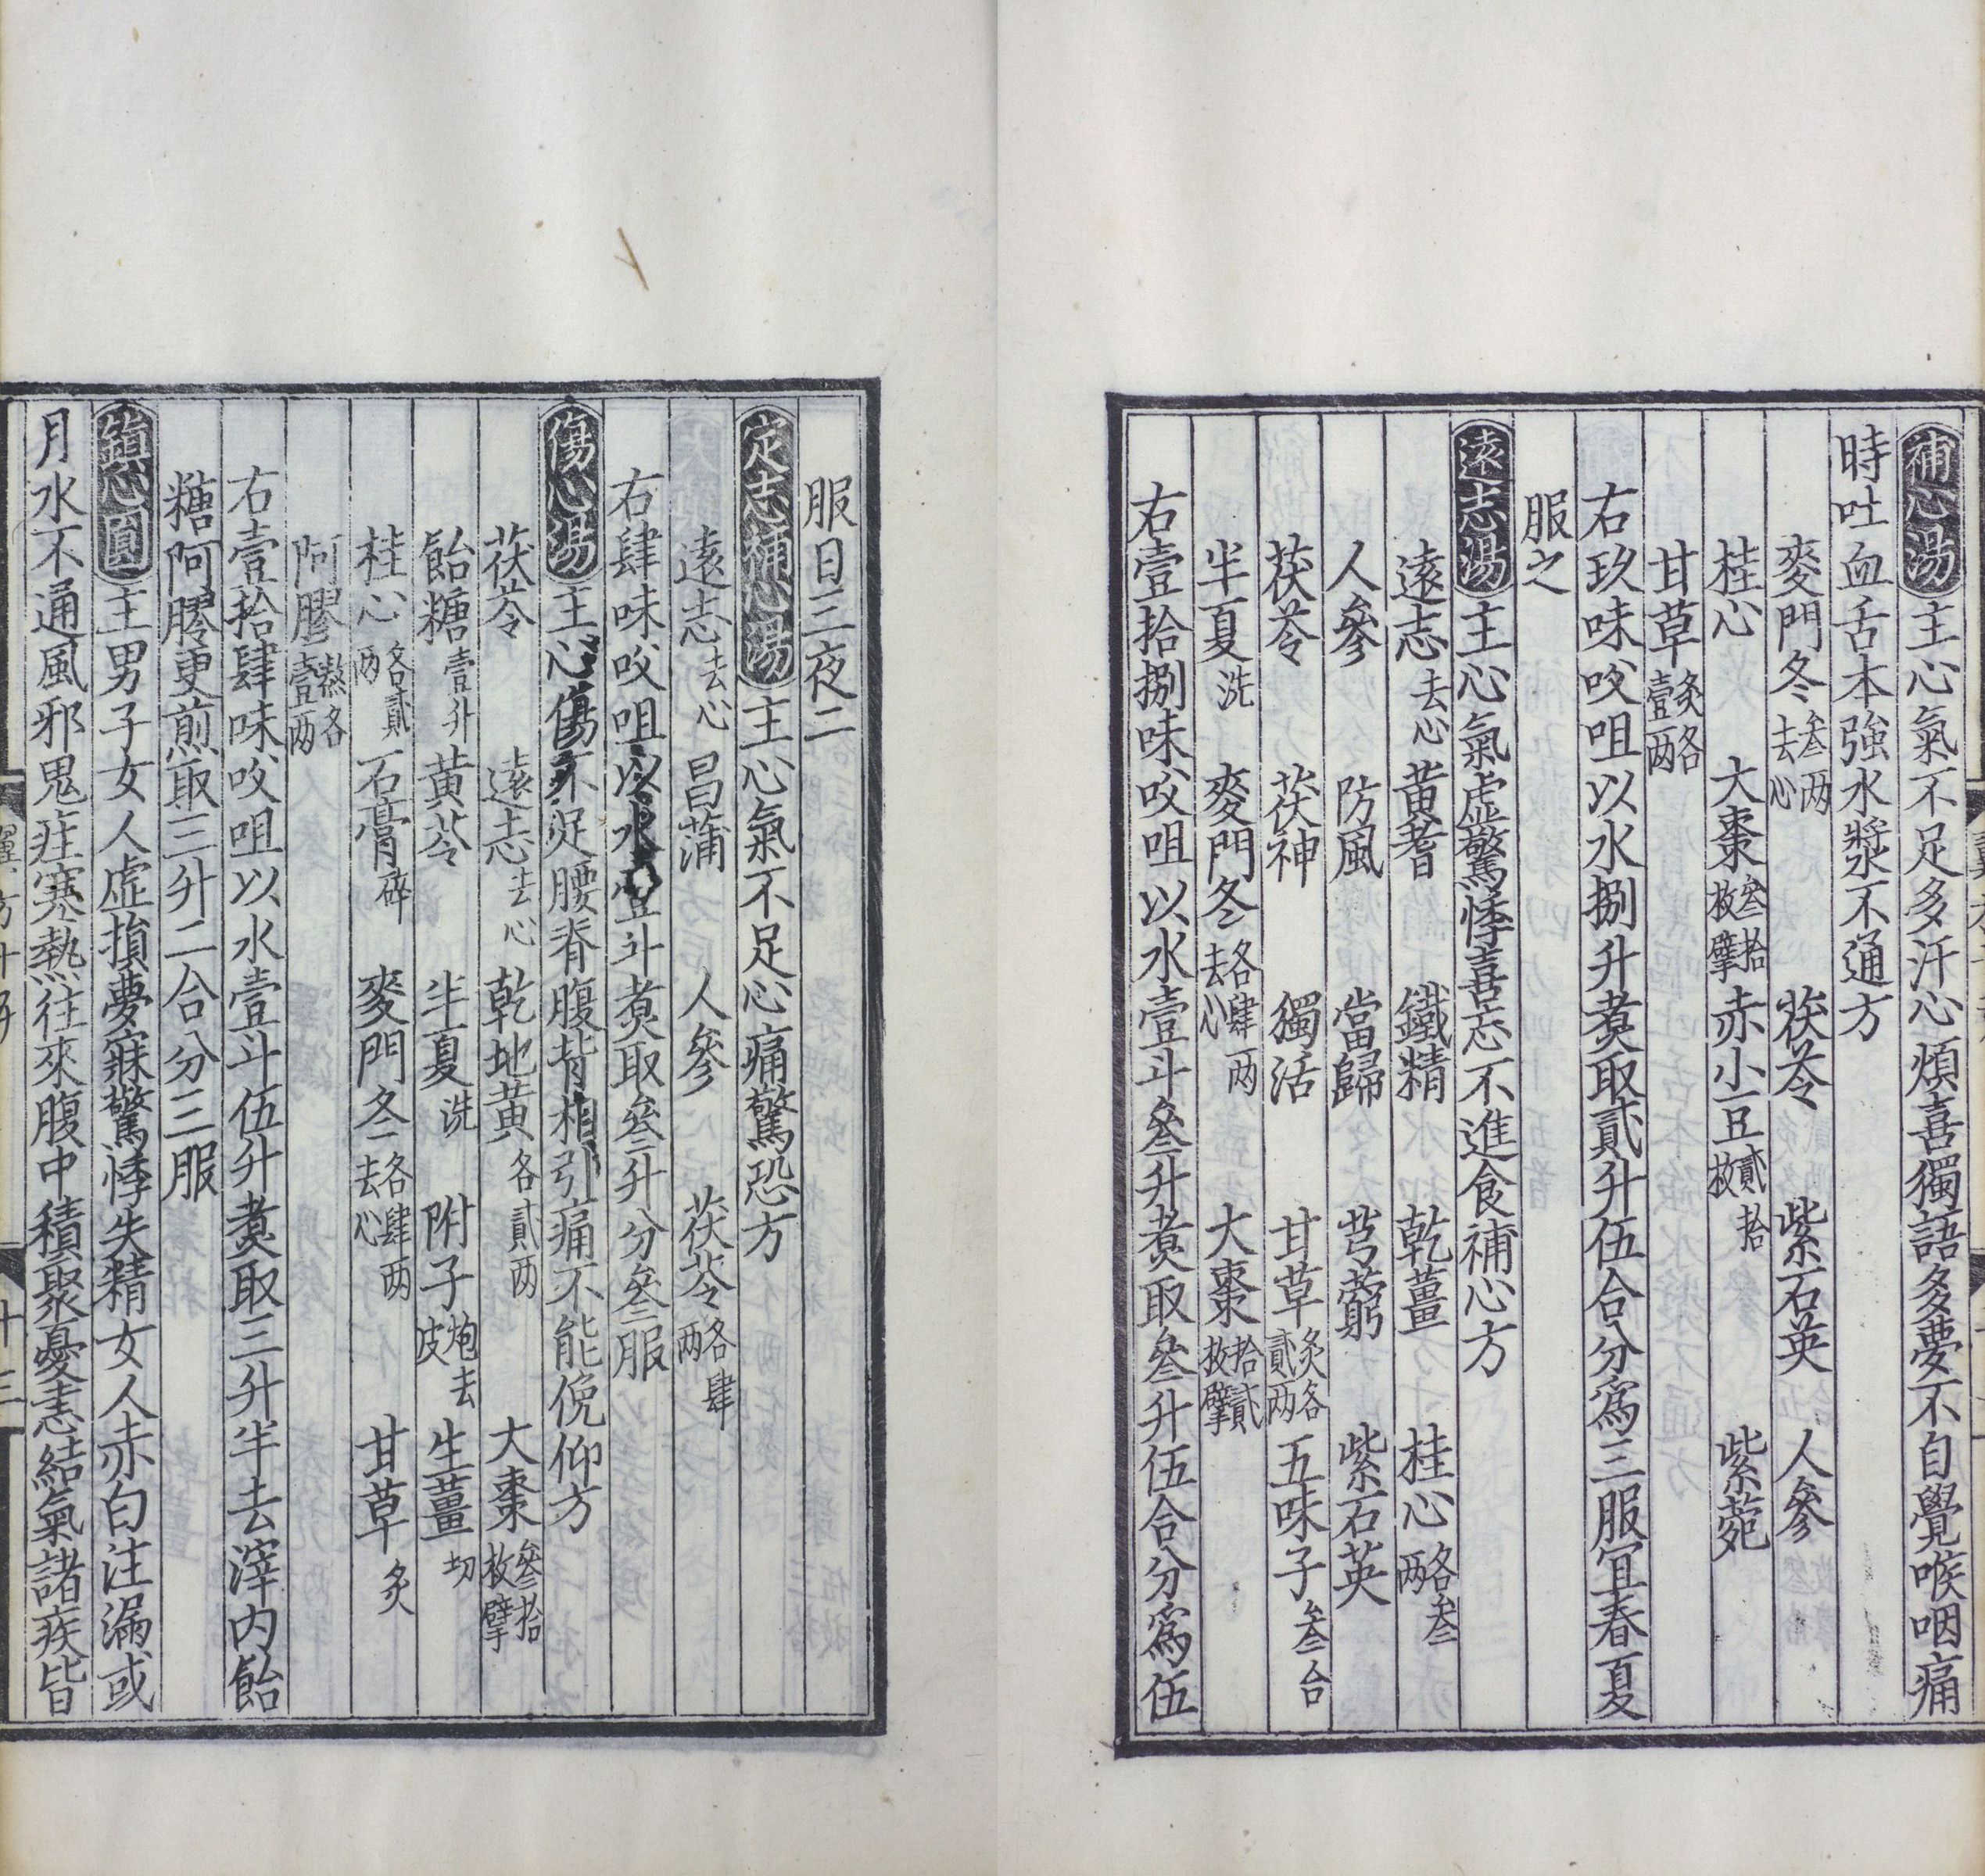 補心湯主心氣不足多汗心煩喜獨語多夢不自覺喉咽痛
時吐血舌本強水漿不通方
麥門冬叁两去心 茯苓 紫石英 人參
桂心 大棗叁拾枚擘 赤小豆貳拾枚 紫菀
甘草炙各壹两
右玖味㕮咀以水捌升煑取貳升伍合分爲三服宜春夏
服之
遠志湯主心氣虛驚悸喜忘不進食補心方
遠志去心 黄耆 鐵精 乾薑 桂心各叁两
人參 防風 當歸 芎藭 紫石英
茯苓 茯神 獨活 甘草炙各貳两 五味子叁合
半夏洗 麥門冬各肆两去心 大棗拾貳枚擘
右壹拾捌味㕮咀以水壹斗叁升煑取叁升伍合分爲伍
服日三夜二
定志補心湯主心氣不足心痛驚恐方
遠志去心 昌蒲 人參 茯苓各肆两
右肆味㕮咀以水壹斗煑取叁升分叁服
傷心湯主心傷不足腰脊腹背相引痛不能俛仰方
茯苓 遠志去心 乾地黄各貳两 大棗叁拾枚擘
飴糖壹升 黄芩 半夏洗 附子炮去皮 生薑切
桂心各貳两 石膏碎 麥門冬各肆两去心 甘草炙
阿膠熬各壹两
右壹拾肆味㕮咀以水壹斗伍升煑取三升半去滓内飴
糖阿膠更煎取三升二合分三服
鎮心圓主男子女人虛損夢寐驚悸失精女人赤白注漏或
月水不通風邪鬼疰寒熱往來腹中積聚憂恚結氣諸疾皆
十三